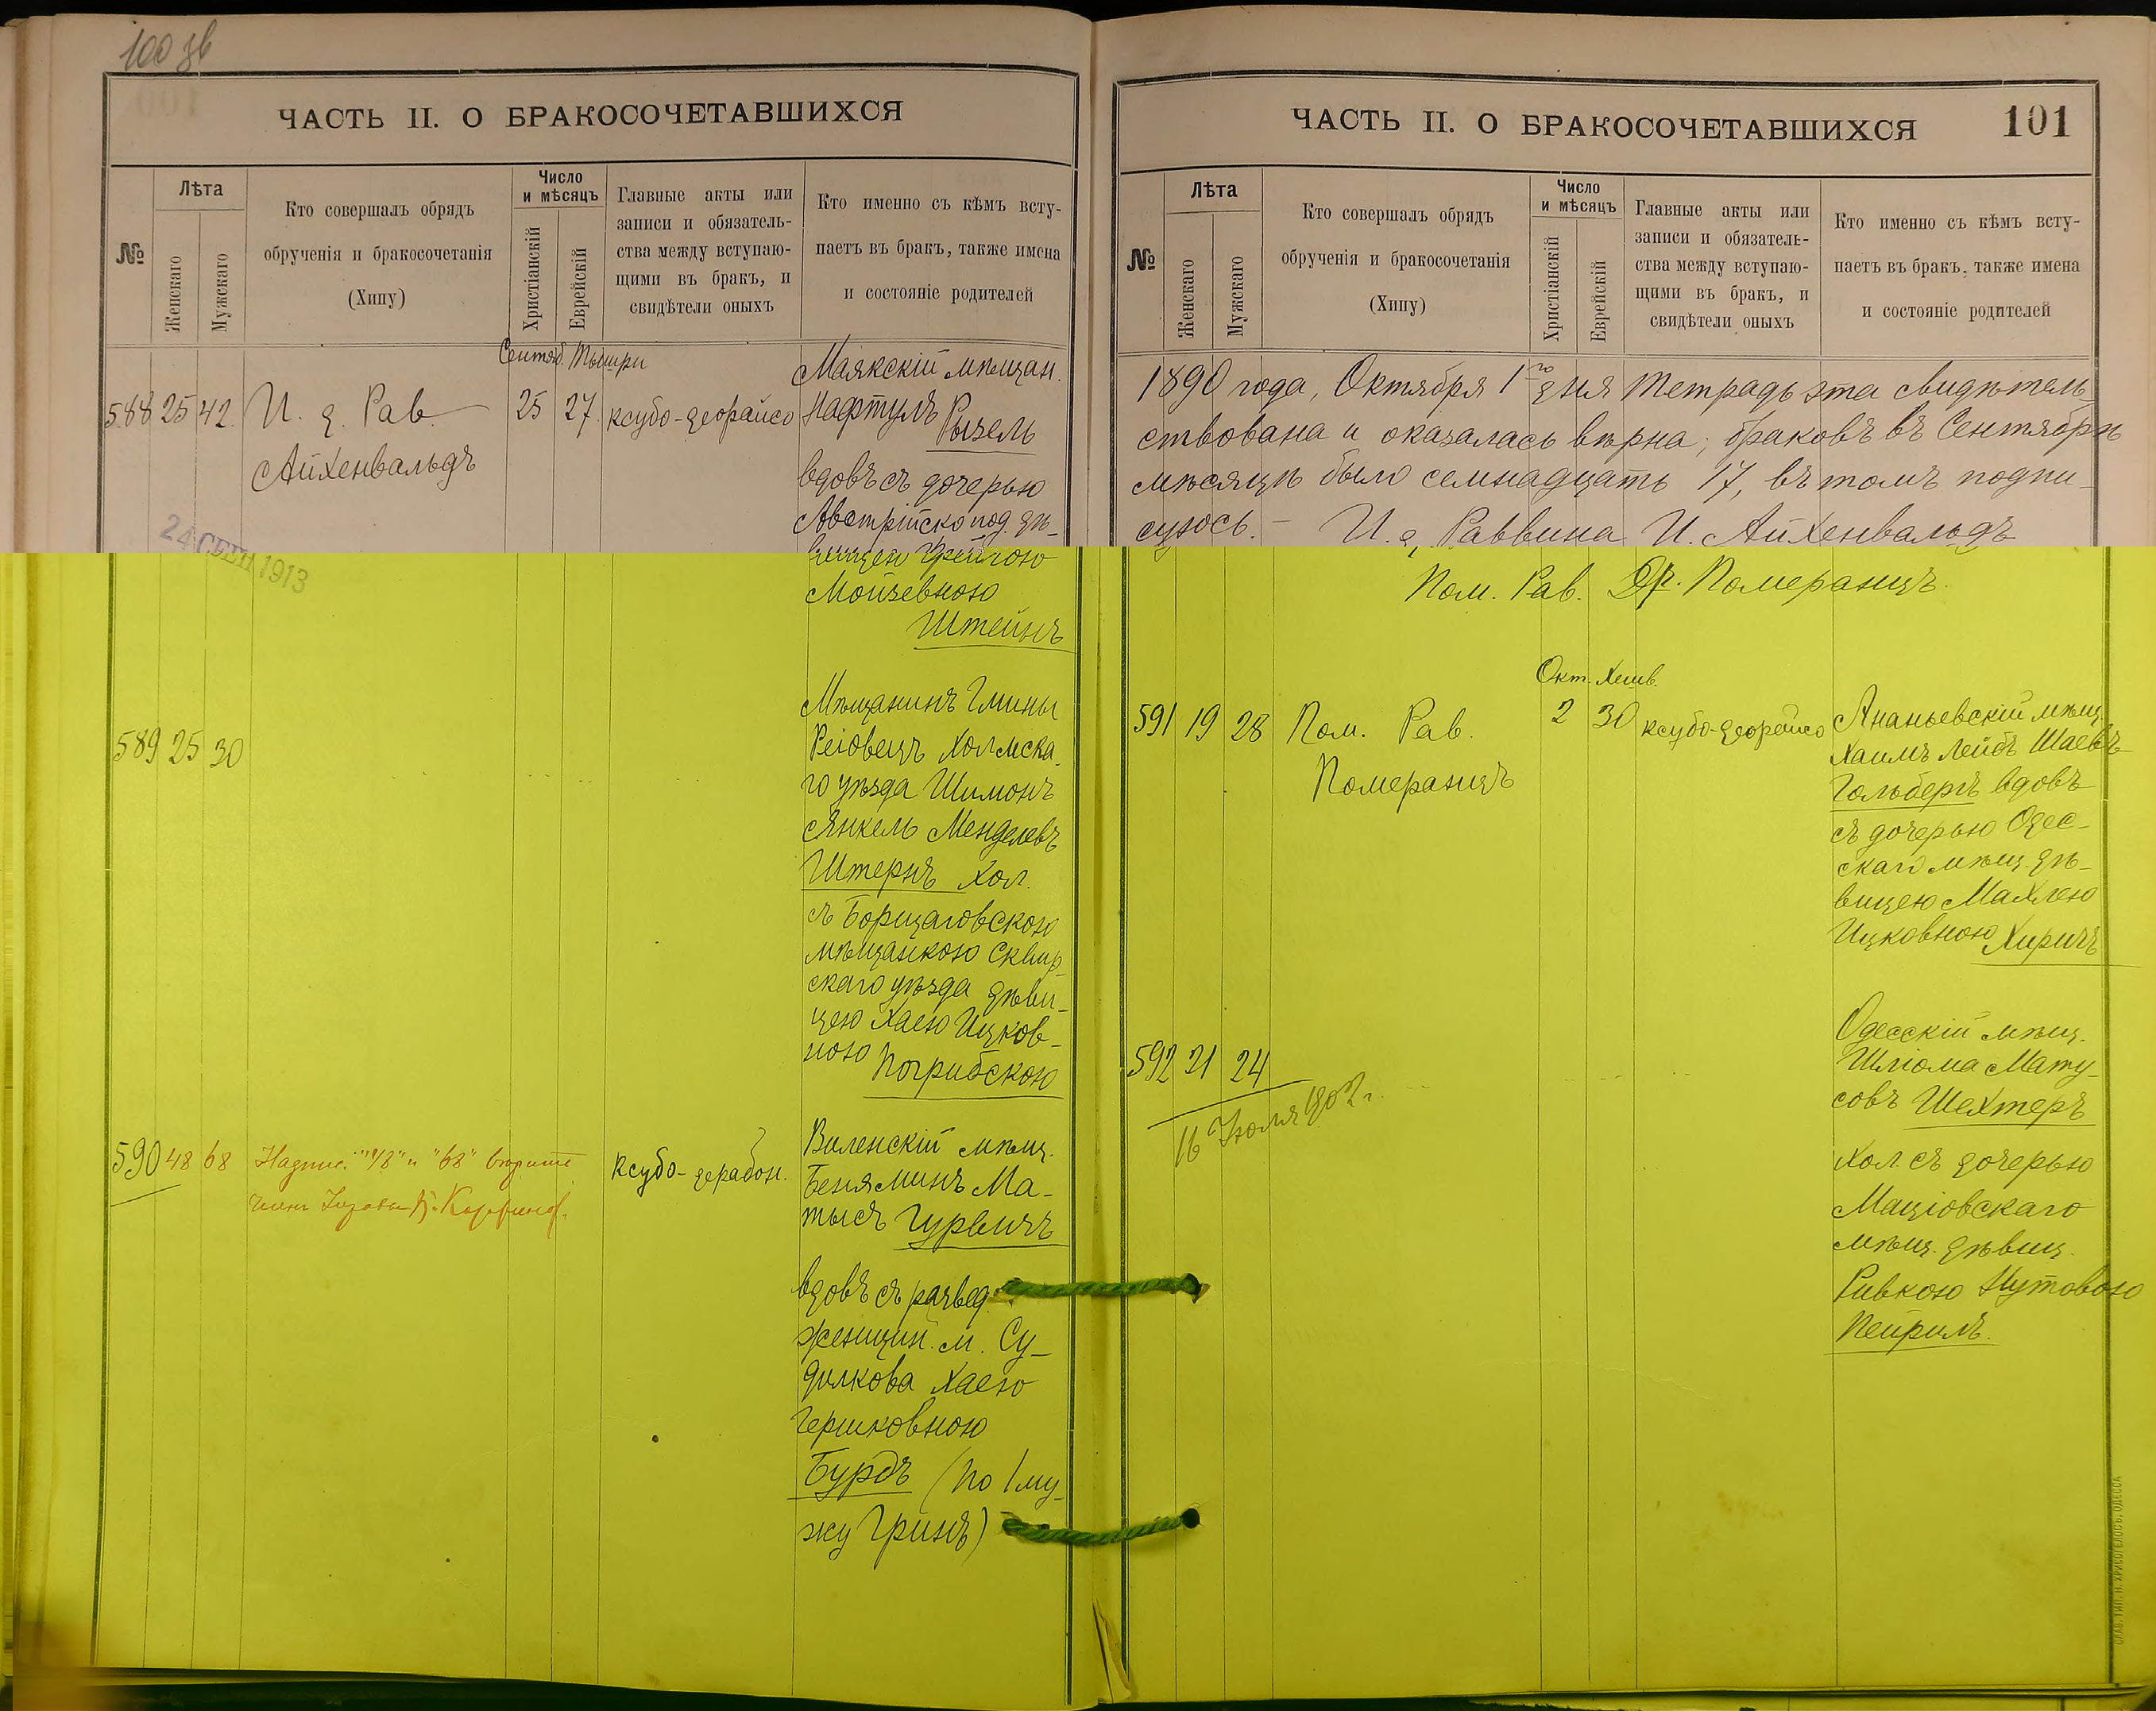 100 зв
ЧАСТЬ II. О БРАКОСОЧЕТАВШИХСЯ
№
Лѣта
Женскаго
Мужскаго
Кто совершалъ обрядъ
обрученія и бракосочетанія
(Хипу)
Число
и мѣсяцъ
Христіанскій
Еврейскій
Главные акты или
записи и обязатель-
ства между вступаю-
щими въ бракъ, и
свидѣтели оныхъ
Кто именно съ кѣмъ всту-
паетъ въ бракъ, также имена
и состояніе родителей
Сентяб. Тышри
588 25 42 И. д. Рав
Айхенвальдъ
25 27 ксубо-деорайсо
Маякскій мѣщан.
Нафтулъ
Рызель
вдовъ съ дочерью
Австрійско под. дѣ-
вицею Фейгою
Мойзевною
Штейнъ
24 СЕН 1913
589 25 30
Мѣщанинъ Гмины
Реіовецъ Холмска-
го уѣзда Шимонъ
Янкель Менделевъ
Штернъ Хол.
съ Борщаговскою
мѣщанкою Сквир-
скаго уѣзда дѣви-
цею Хаею Ицков-
ною Погрибскою
590 48 68 Надпис. "48" и "68" вѣрьте
ксубо-дерабон.
Виленскій мѣщ.
Беняминъ Ма-
тысъ Гурвичъ
вдовъ съ развед.
женщин. м. Су-
дилкова Хаею
Гершковною
Бурдъ (по 1 му-
жу Гринъ)
ЧАСТЬ II. О БРАКОСОЧЕТАВШИХСЯ
101
№
Лѣта
Женскаго
Мужскаго
Кто совершалъ обрядъ
обрученія и бракосочетанія
(Хипу)
Число
и мѣсяцъ
Христіанскій
Еврейскій
Главные акты или
записи и обязатель-
ства между вступаю-
щими въ бракъ, и
свидѣтели оныхъ
Кто именно съ кѣмъ всту-
паетъ въ бракъ, также имена
и состояніе родителей
1890 года, Октября 1го дня тетрадь эта свидѣтель-
ствована и оказалась вѣрна; браковъ въ Сентябрѣ
мѣсяцѣ было семнадцать 17, въ томъ подпи-
суюсь. – И. д. Раввина И. Айхенвальдъ
Пом. Рав. Др. Померанцъ.
Окт. Хешв.
591 19 28 Пом. Рав.
Померанцъ
2 30 ксубо-деорайсо
Ананьевскій мѣщ.
Хаимъ Лейбъ Шаевъ
Гольбергъ вдовъ
съ дочерью Одес-
скаго мѣщ. дѣ-
вицею Махлею
Ицковною Хиричъ
592 21 24
16 Іюля 1902 г.
Одесскій мѣщ.
Шліома Мату-
совъ Шехтеръ
Хол. съ дочерью
Маціовскаго
мѣщ. дѣвиц.
Ривкою Нутовою
Пейрилъ.
СЛАВ. ТИП. Н. ХРИСОГЕЛОСЪ, ОДЕССА